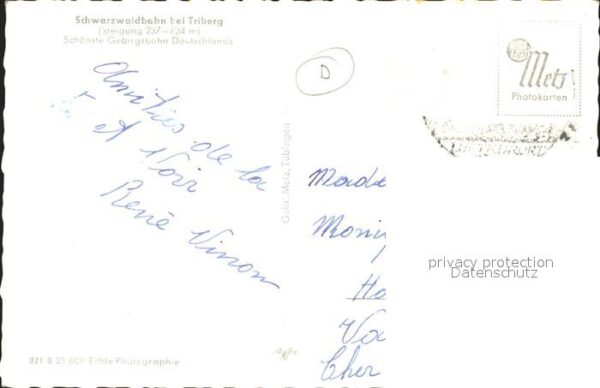 Schwarzwaldbahn bei Triberg
(Steigung 237–834 m)
Schönste Gebirgsbahn Deutschlands
D
Metz
Photokarten
Amitiés de la
et Noir
René Vinon
Gebr. Metz, Tübingen
Mada
Moni
Ho
Va
Cher
privacy protection
Datenschutz
321 B 22 Echte Photographie